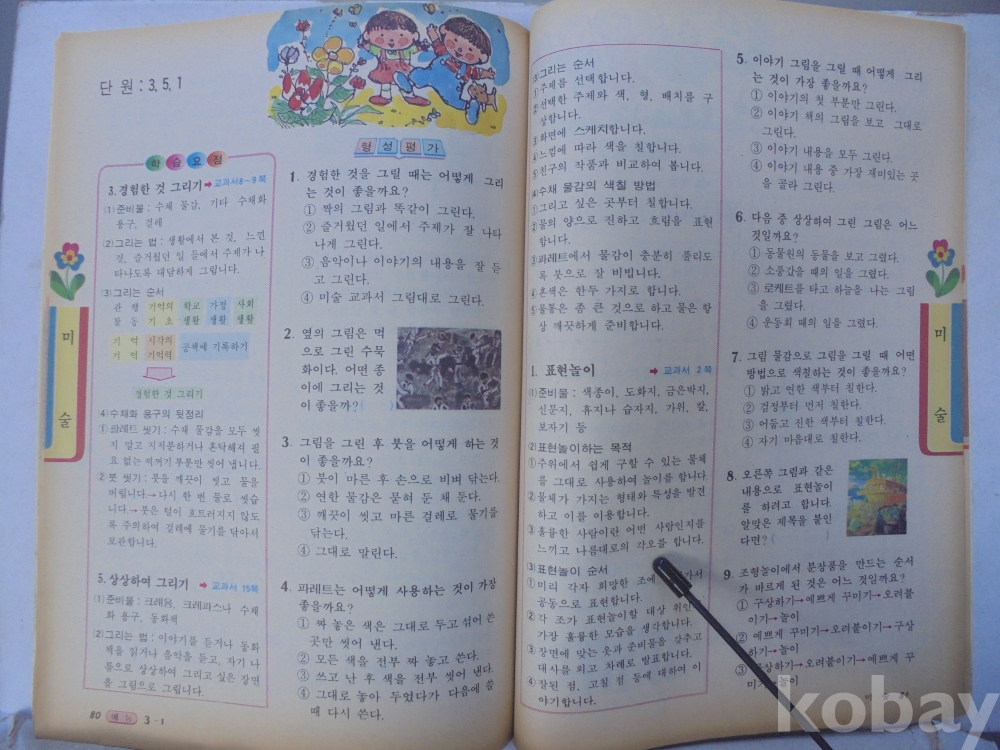 단 원 : 3, 5, 1
학 습 요 점
3. 경험한 것 그리기 → 교과서 8~9쪽
(1) 준비물 : 수채 물감, 기타 수채화
용구, 걸레
(2) 그리는 법 : 생활에서 본 것, 느낀
것, 즐거웠던 일 등에서 주제가 나
타나도록 대담하게 그립니다.
(3) 그리는 순서
관 행 기억의 학교 가정 사회
찰 동 기 초 생활 생활 생활
기 억 시각의 공책에 기록하기
기 억 기억력
경험한 것 그리기
(4) 수채화 용구의 뒷정리
① 팔레트 씻기 : 수채 물감을 모두 씻
지 말고 지저분하거나 혼탁해져 필
요 없는 찌꺼기 부분만 씻어 냅니다.
② 붓 씻기 : 붓을 깨끗이 씻고 물을
버립니다. → 다시 한 번 물로 씻습
니다. → 붓은 털이 흐트러지지 않도
록 주의하여 걸레에 물기를 닦아서
보관합니다.
5. 상상하여 그리기 → 교과서 15쪽
(1) 준비물 : 크레용, 크레파스나 수채
화 용구, 동화책
(2) 그리는 법 : 이야기를 듣거나 동화
책을 읽거나 음악을 듣고, 자기 나
름으로 상상하여 그리고 싶은 장면
을 그림으로 그립니다.
80 예능 3-1
미 술
형 성 평 가
1. 경험한 것을 그릴 때는 어떻게 그리
는 것이 좋을까요?
① 짝의 그림과 똑같이 그린다.
② 즐거웠던 일에서 주제가 잘 나타
나게 그린다.
③ 음악이나 이야기의 내용을 잘 듣
고 그린다.
④ 미술 교과서 그림대로 그린다.
2. 옆의 그림은 먹
으로 그린 수묵
화이다. 어떤 종
이에 그리는 것
이 좋을까? ( )
3. 그림을 그린 후 붓을 어떻게 하는 것
이 좋을까요?
① 붓이 마른 후 손으로 비벼 닦는다.
② 연한 물감은 묻혀 둔 채 둔다.
③ 깨끗이 씻고 마른 걸레로 물기를
닦는다.
④ 그대로 말린다.
4. 파레트는 어떻게 사용하는 것이 가장
좋을까요?
① 짜 놓은 색은 그대로 두고 섞어 쓴
곳만 씻어 낸다.
② 모든 색을 전부 짜 놓고 쓴다.
③ 쓰고 난 후 색을 전부 씻어 낸다.
④ 그대로 놓아 두었다가 다음에 쓸
때 다시 쓴다.
(3) 그리는 순서
① 주제를 선택합니다.
② 선택한 주제와 색, 형, 배치를 구
상합니다.
③ 화면에 스케치합니다.
④ 느낌에 따라 색을 칠합니다.
⑤ 친구의 작품과 비교하여 봅니다.
(4) 수채 물감의 색칠 방법
① 그리고 싶은 곳부터 칠합니다.
② 물의 양으로 진하고 흐림을 표현
합니다.
③ 파레트에서 물감이 충분히 풀리도
록 붓으로 잘 비빕니다.
④ 혼색은 한두 가지로 합니다.
⑤ 물통은 좀 큰 것으로 하고 물은 항
상 깨끗하게 준비합니다.
1. 표현놀이 → 교과서 2쪽
(1) 준비물 : 색종이, 도화지, 금은박지,
신문지, 휴지나 습자지, 가위, 칼,
보자기 등
(2) 표현놀이하는 목적
① 주위에서 쉽게 구할 수 있는 물체
를 그대로 사용하여 놀이를 합니다.
② 물체가 가지는 형태와 특성을 발견
하고 이를 이용합니다.
③ 훌륭한 사람이란 어떤 사람인지를
느끼고 나름대로의 각오를 합니다.
(3) 표현놀이 순서
① 미리 각자 희망한 조에 가서
공동으로 표현합니다.
② 각 조가 표현놀이할 대상 위인
가장 훌륭한 모습을 생각합니다.
③ 장면에 맞는 옷과 준비물을 갖추고
대사를 외고 차례로 발표합니다.
④ 잘된 점, 고칠 점 등에 대하여 이
야기합니다.
5. 이야기 그림을 그릴 때 어떻게 그리
는 것이 가장 좋을까요?
① 이야기의 첫 부분만 그린다.
② 이야기 책의 그림을 보고 그대로
그린다.
③ 이야기 내용을 모두 그린다.
④ 이야기 내용 중 가장 재미있는 곳
을 골라 그린다.
6. 다음 중 상상하여 그린 그림은 어느
것일까요?
① 동물원의 동물을 보고 그렸다.
② 소풍갔을 때의 일을 그렸다.
③ 로케트를 타고 하늘을 나는 그림
을 그렸다.
④ 운동회 때의 일을 그렸다.
7. 그림 물감으로 그림을 그릴 때 어떤
방법으로 색칠하는 것이 좋을까요?
① 밝고 연한 색부터 칠한다.
② 검정부터 먼저 칠한다.
③ 어둡고 진한 색부터 칠한다.
④ 자기 마음대로 칠한다.
8. 오른쪽 그림과 같은
내용으로 표현놀이
를 하려고 합니다.
알맞은 제목을 붙인
다면? ( )
9. 조형놀이에서 분장품을 만드는 순서
가 바르게 된 것은 어느 것일까요?
① 구상하기→예쁘게 꾸미기→오려붙
이기→놀이
② 예쁘게 꾸미기→오려붙이기→구상
하기→놀이
③ 구상하기→오려붙이기→예쁘게 꾸
미기→놀이
미 술
81
kobay